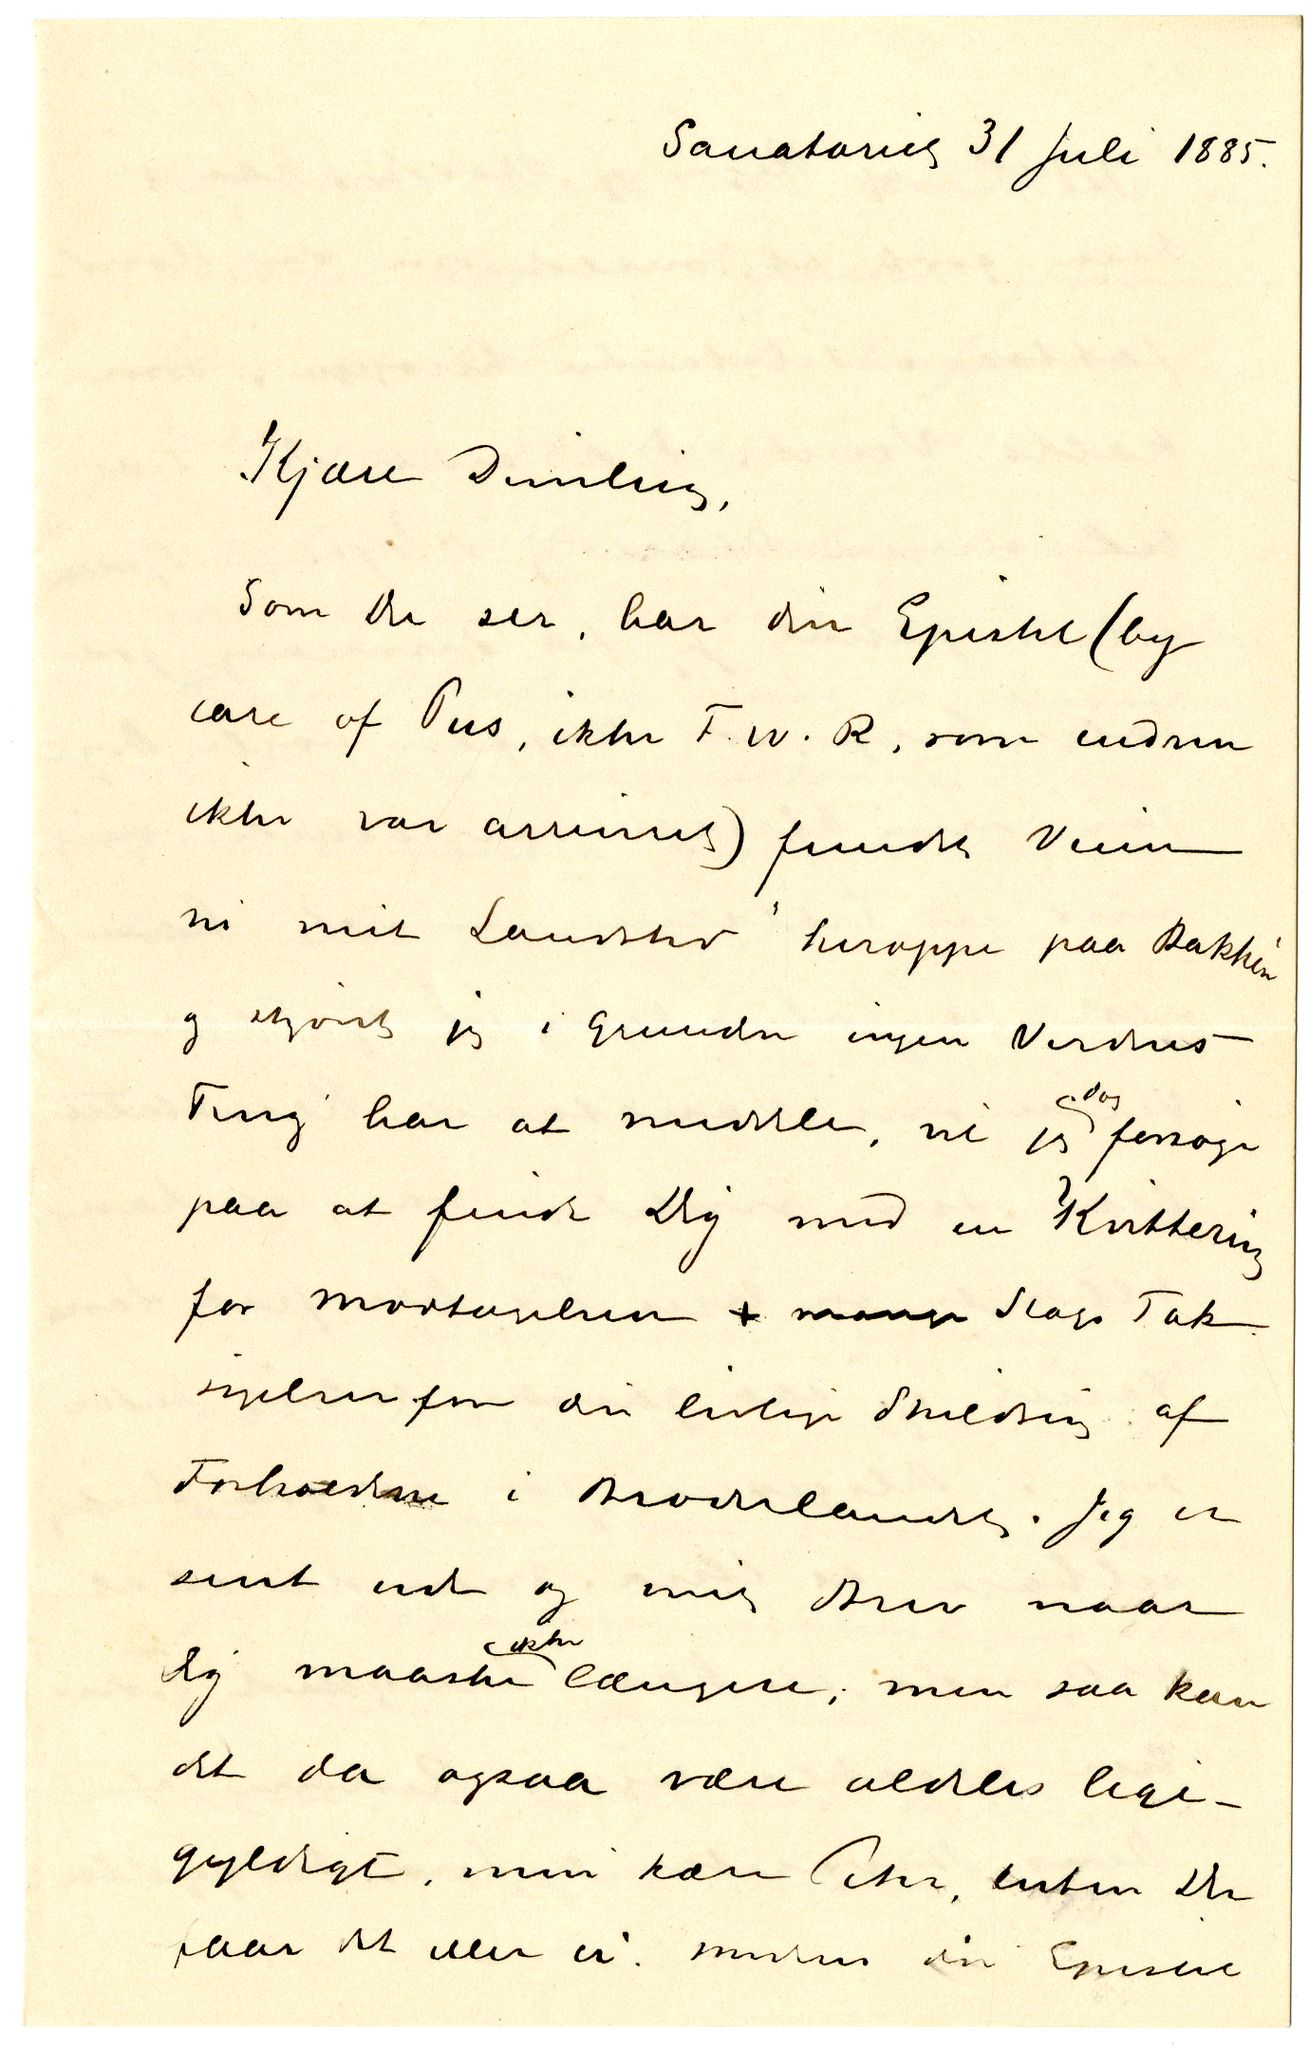 Sanatoriet 31 Juli 1885.
Kjære Dimling,
Som Du ser, har din Epistel (by
care of Pus, ikke F. W. R, som endnu
ikke var arriveret) fundet Veien
til mit Landsted heroppe paa Bakken
og skjønt jeg i Grunden ingen Verdens
Ting har at meddele, vil jeg idag forsøge
paa at finde Dig med en Kvittering
for Modtagelsen + mange Slags Tak
sigelser for din livlige Skildring af
Forholdene i Broderlandet. Jeg er
sent ude og mit Brev naar
Dig maaske ikke længere; men saa kan
det da ogsaa være aldeles lige-
gyldigt, min kære Peter, enten Du
faar det eller ei. medens din Epistel